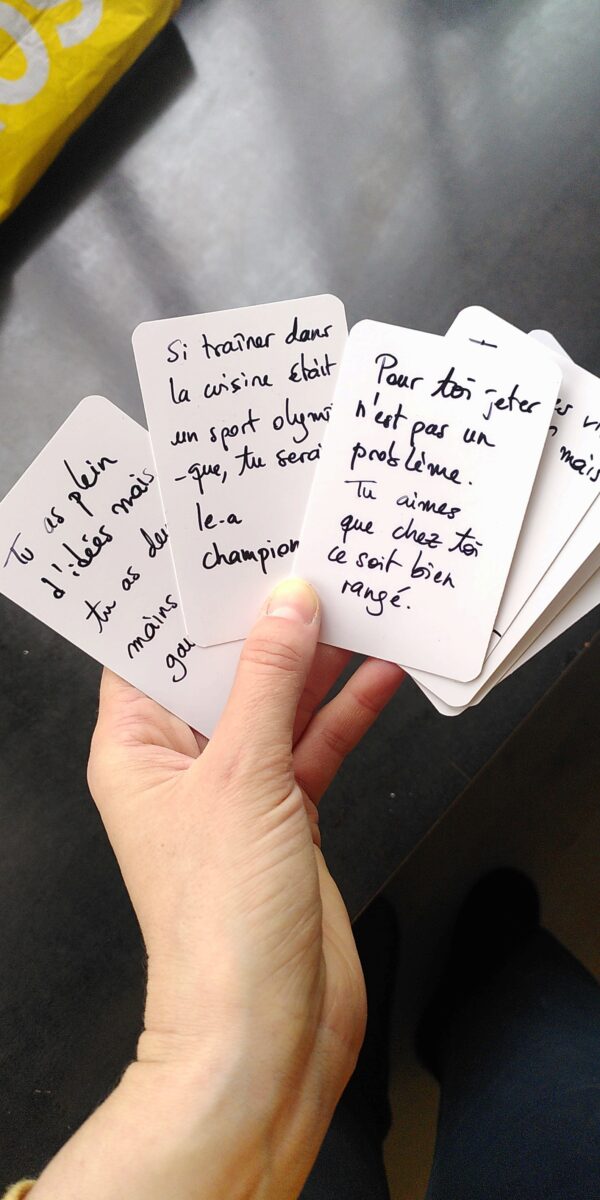 Tu as plein
d'idées mais
tu as
mains
Si traîner dans
la cuisine était
un sport olympi
-que, tu serai
le.a
champion
Pour toi jeter
n'est pas un
problème.
Tu aimes
que chez toi
ce soit bien
rangé.
mais